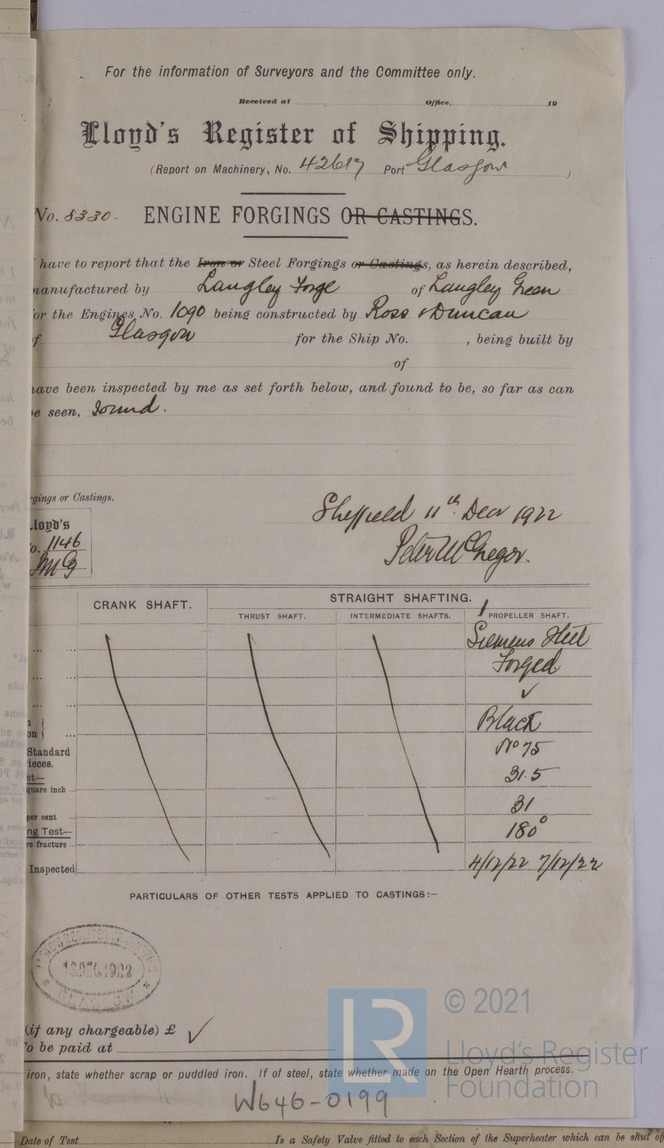 For the information of Surveyors and the Committee only.
Received at Office, 19
Lloyd's Register of Shipping.
(Report on Machinery, No. 42617 Port Glasgow )
No. 8330. ENGINE FORGINGS OR CASTINGS.
have to report that the Iron or Steel Forgings or Castings, as herein described,
manufactured by Langley Forge of Langley Green
for the Engines, No. 1090 being constructed by Ross & Duncan
of Glasgow for the Ship No. , being built by
of
have been inspected by me as set forth below, and found to be, so far as can
be seen, Sound.
rgings or Castings.
Sheffield 11th Decr 1922
Lloyd's
No. 1146
PMcG
Peter McGregor.
CRANK SHAFT. STRAIGHT SHAFTING.
THRUST SHAFT. INTERMEDIATE SHAFTS. 1 PROPELLER SHAFT.
Siemens Steel
Forged
✓
Black
Standard No 75
ieces.
st— 31.5
quare inch
per cent 31
ng Test— 180°
re fracture
Inspected 4/12/22 7/12/22
PARTICULARS OF OTHER TESTS APPLIED TO CASTINGS:—
LLOYD'S REGISTER OF SHIPPING
DEC. 1922
GLASGOW
(if any chargeable) £ ✓
To be paid at
iron, state whether scrap or puddled iron. If of steel, state whether made on the Open Hearth process.
W646-0199
© 2021
Lloyd's Register
Foundation
LR
Date of Test Is a Safety Valve fitted to each Section of the Superheater which can be shut of